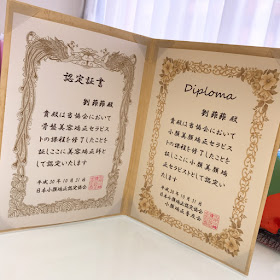 認定証書
劉蓓蓓 殿
貴殿は当協会において
骨盤美容矯正セラピス
トの課程を修了したことを
証しここに美容矯正師と
して認定いたします
平成30年10月31日
日本小顔矯正認定協会
Diploma
劉蓓蓓 殿
貴殿は当協会において
小顔美顔矯正セラピス
トの課程を修了したことを
証しここに小顔美顔
矯正セラピストとして認定い
たします
平成30年10月31日
日本小顔矯正認定協会